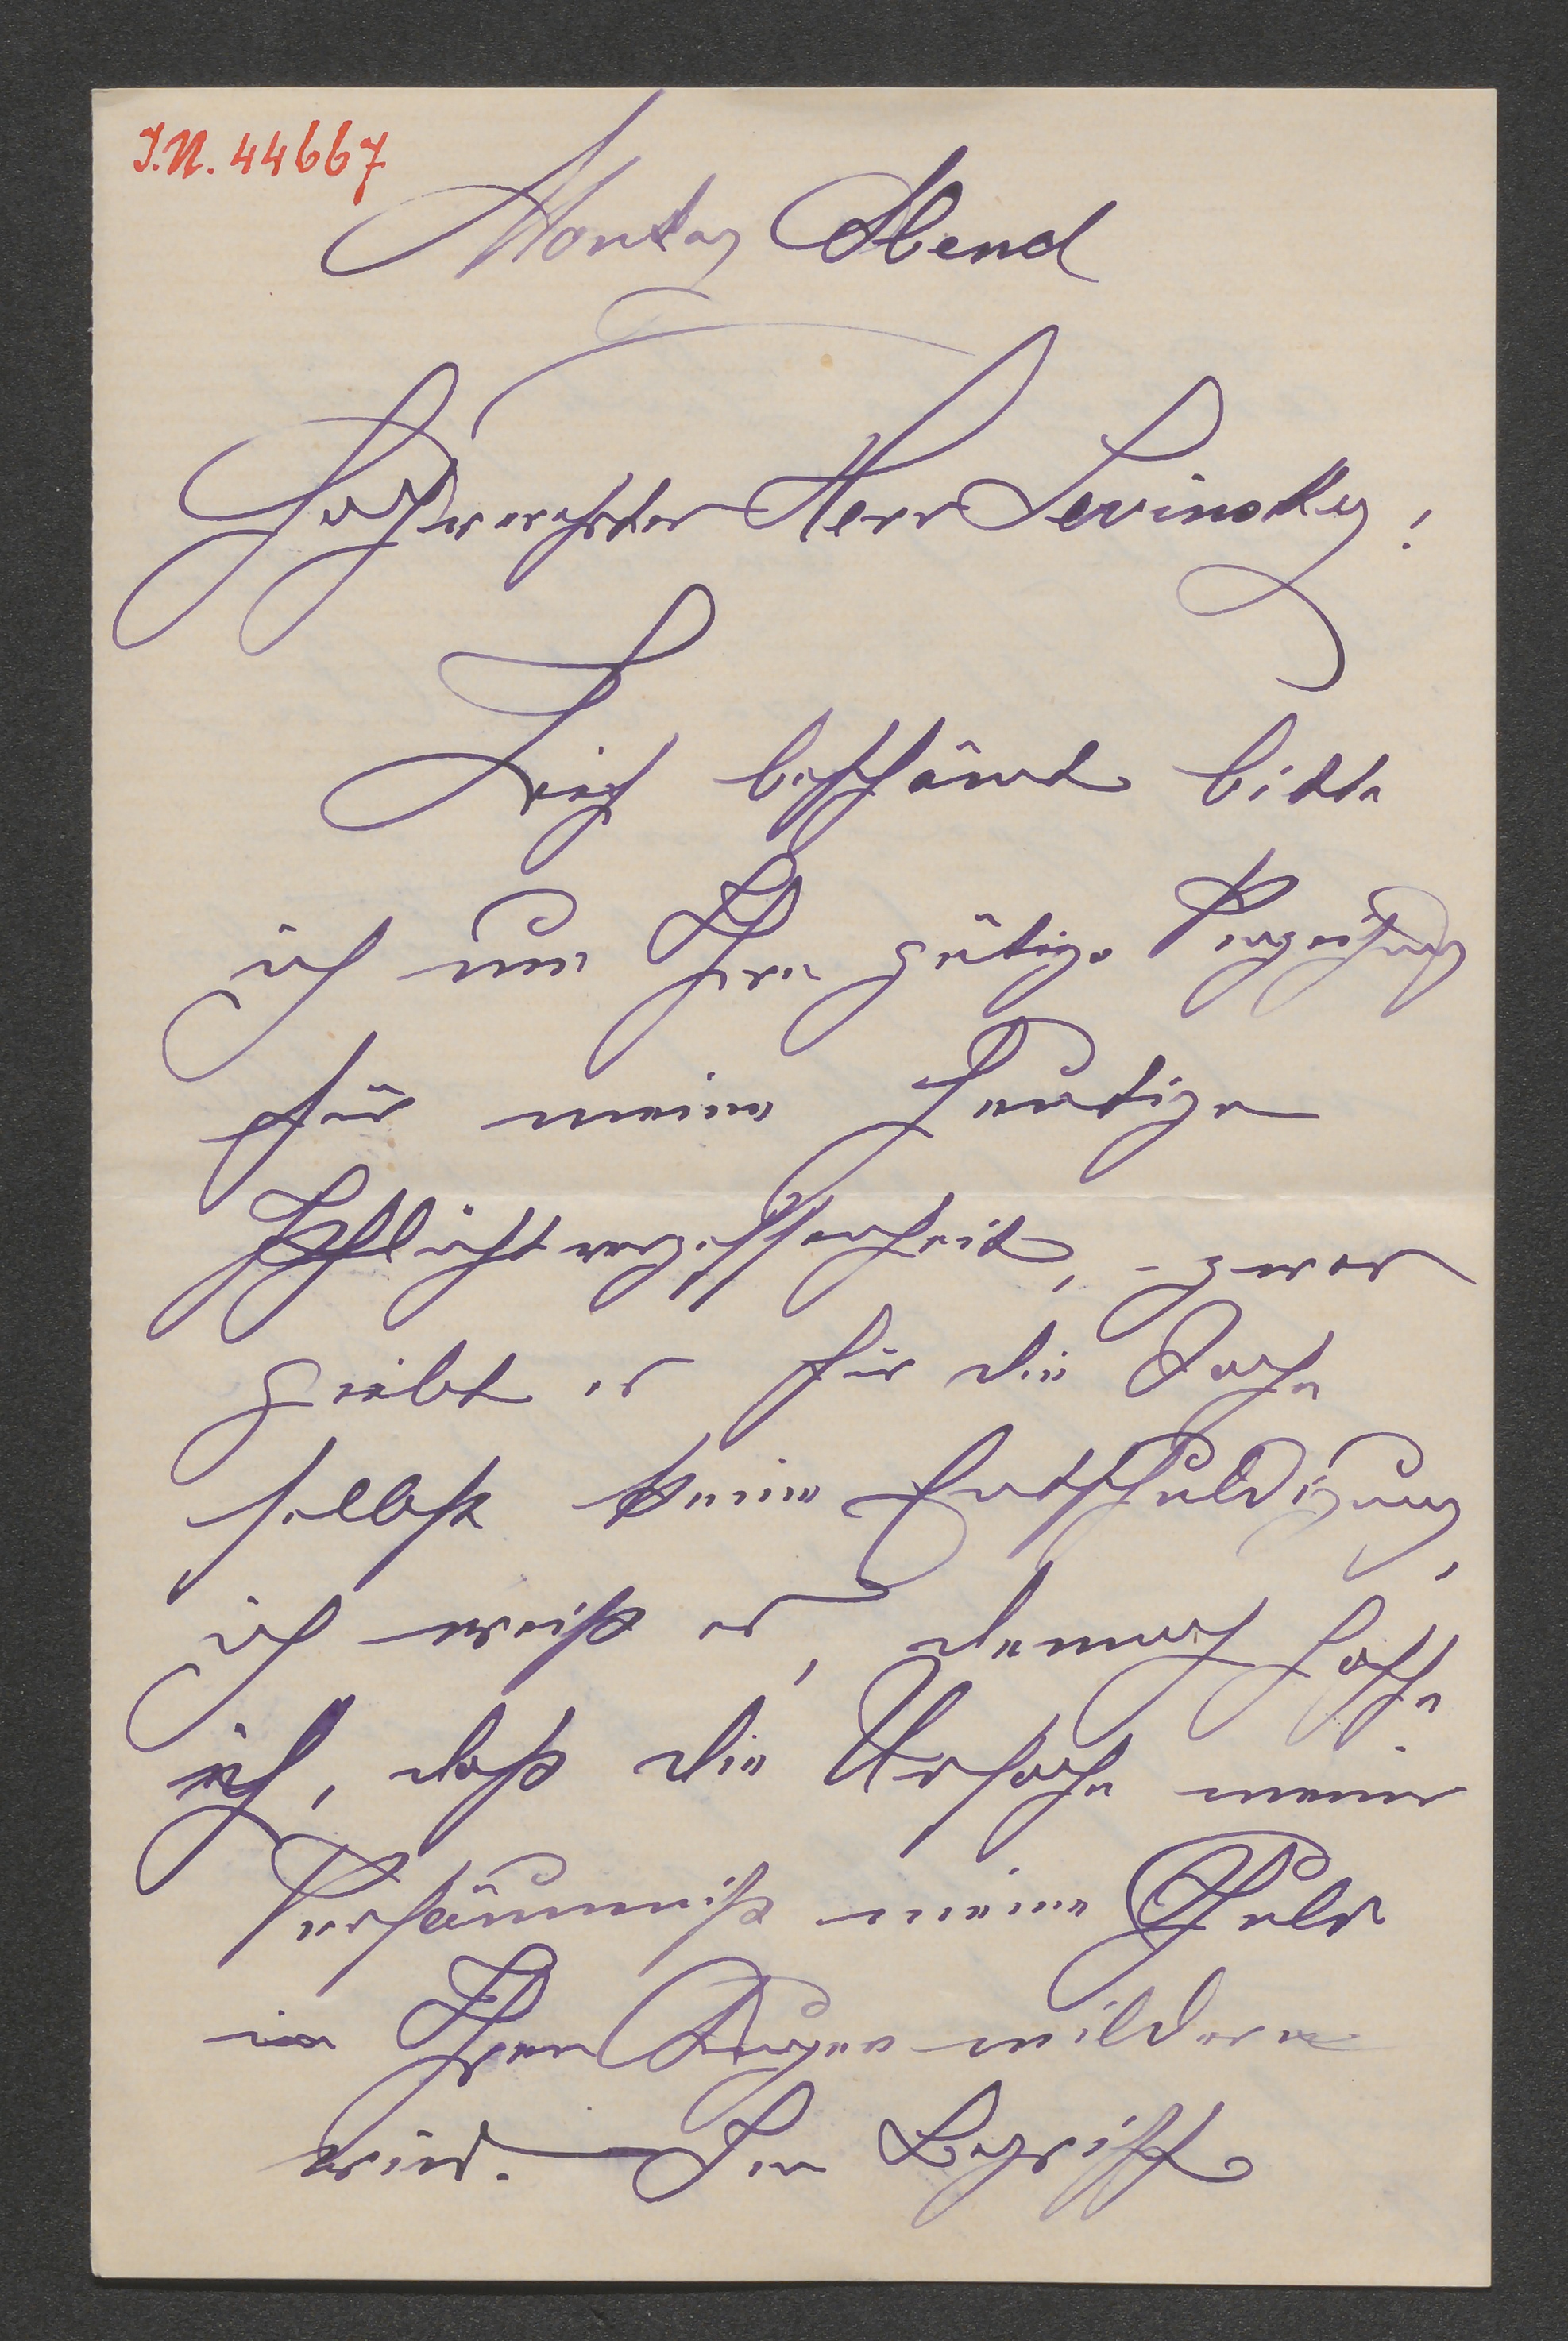 I.N. 44667
Montag Abend
Hochverehrter Herr Lewinsky!
Tief beschämt bitte
ich um Ihre gütige Verzeihung
für meine heutige
Pflichtvergessenheit, - zwar
giebt es für die Sache
selbst keine Entschuldigung,
ich weiß es, dennoch hoffe
ich, daß die Ursache meiner
Versäumniß meine Schuld
in Ihren Augen mildern
wird. — Im Begriffe